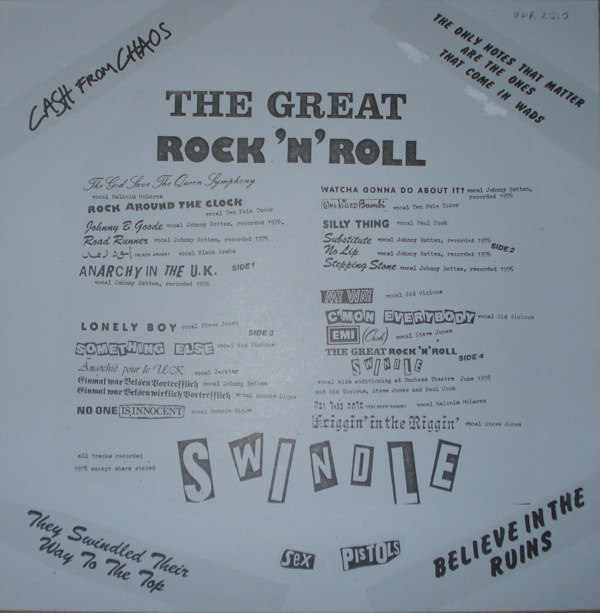 CASH FROM CHAOS
THE ONLY NOTES THAT MATTER
ARE THE ONES
THAT COME IN WADS
THE GREAT
ROCK 'N' ROLL
The God Save The Queen Symphony
vocal Malcolm McLaren
ROCK AROUND THE CLOCK
vocal Ten Pole Tudor
Johnny B Goode vocal Johnny Rotten, recorded 1976.
Road Runner vocal Johnny Rotten, recorded 1976
(BLACK ARABS) vocal Black Arabs
ANARCHY IN THE U.K. SIDE 1
vocal Johnny Rotten, recorded 1976
WATCHA GONNA DO ABOUT IT? vocal Johnny Rotten,
recorded 1976
Who Killed Bambi vocal Ten Pole Tudor
SILLY THING vocal Paul Cook
Substitute vocal Johnny Rotten, recorded 1976 SIDE 2
No Lip vocal Johnny Rotten, recorded 1976
Stepping Stone vocal Johnny Rotten, recorded 1976
LONELY BOY vocal Steve Jones
SIDE 3
SOMETHING ELSE vocal Sid Vicious
Anarchie pour le U.K. vocal Jerzimy
Einmal war Belsen Vortrefflich vocal Johnny Rotten
Einmal war Belsen wirklich Vortrefflich vocal Ronnie Biggs
NO ONE IS INNOCENT vocal Ronnie Biggs
MY WAY vocal Sid Vicious
C'MON EVERYBODY vocal Sid Vicious
EMI (Orch) vocal Steve Jones
THE GREAT ROCK 'N' ROLL
SIDE 4
SWINDLE
vocal kids auditioning at Duchess Theatre June 1978
but Sid Vicious, Steve Jones and Paul Cook
vocal Malcolm McLaren
Friggin' in the Riggin' vocal Steve Jones
All tracks recorded
1978 except where stated
SWINDLE
They Swindled Their
Way To The Top
SEX PISTOLS
BELIEVE IN THE
RUINS